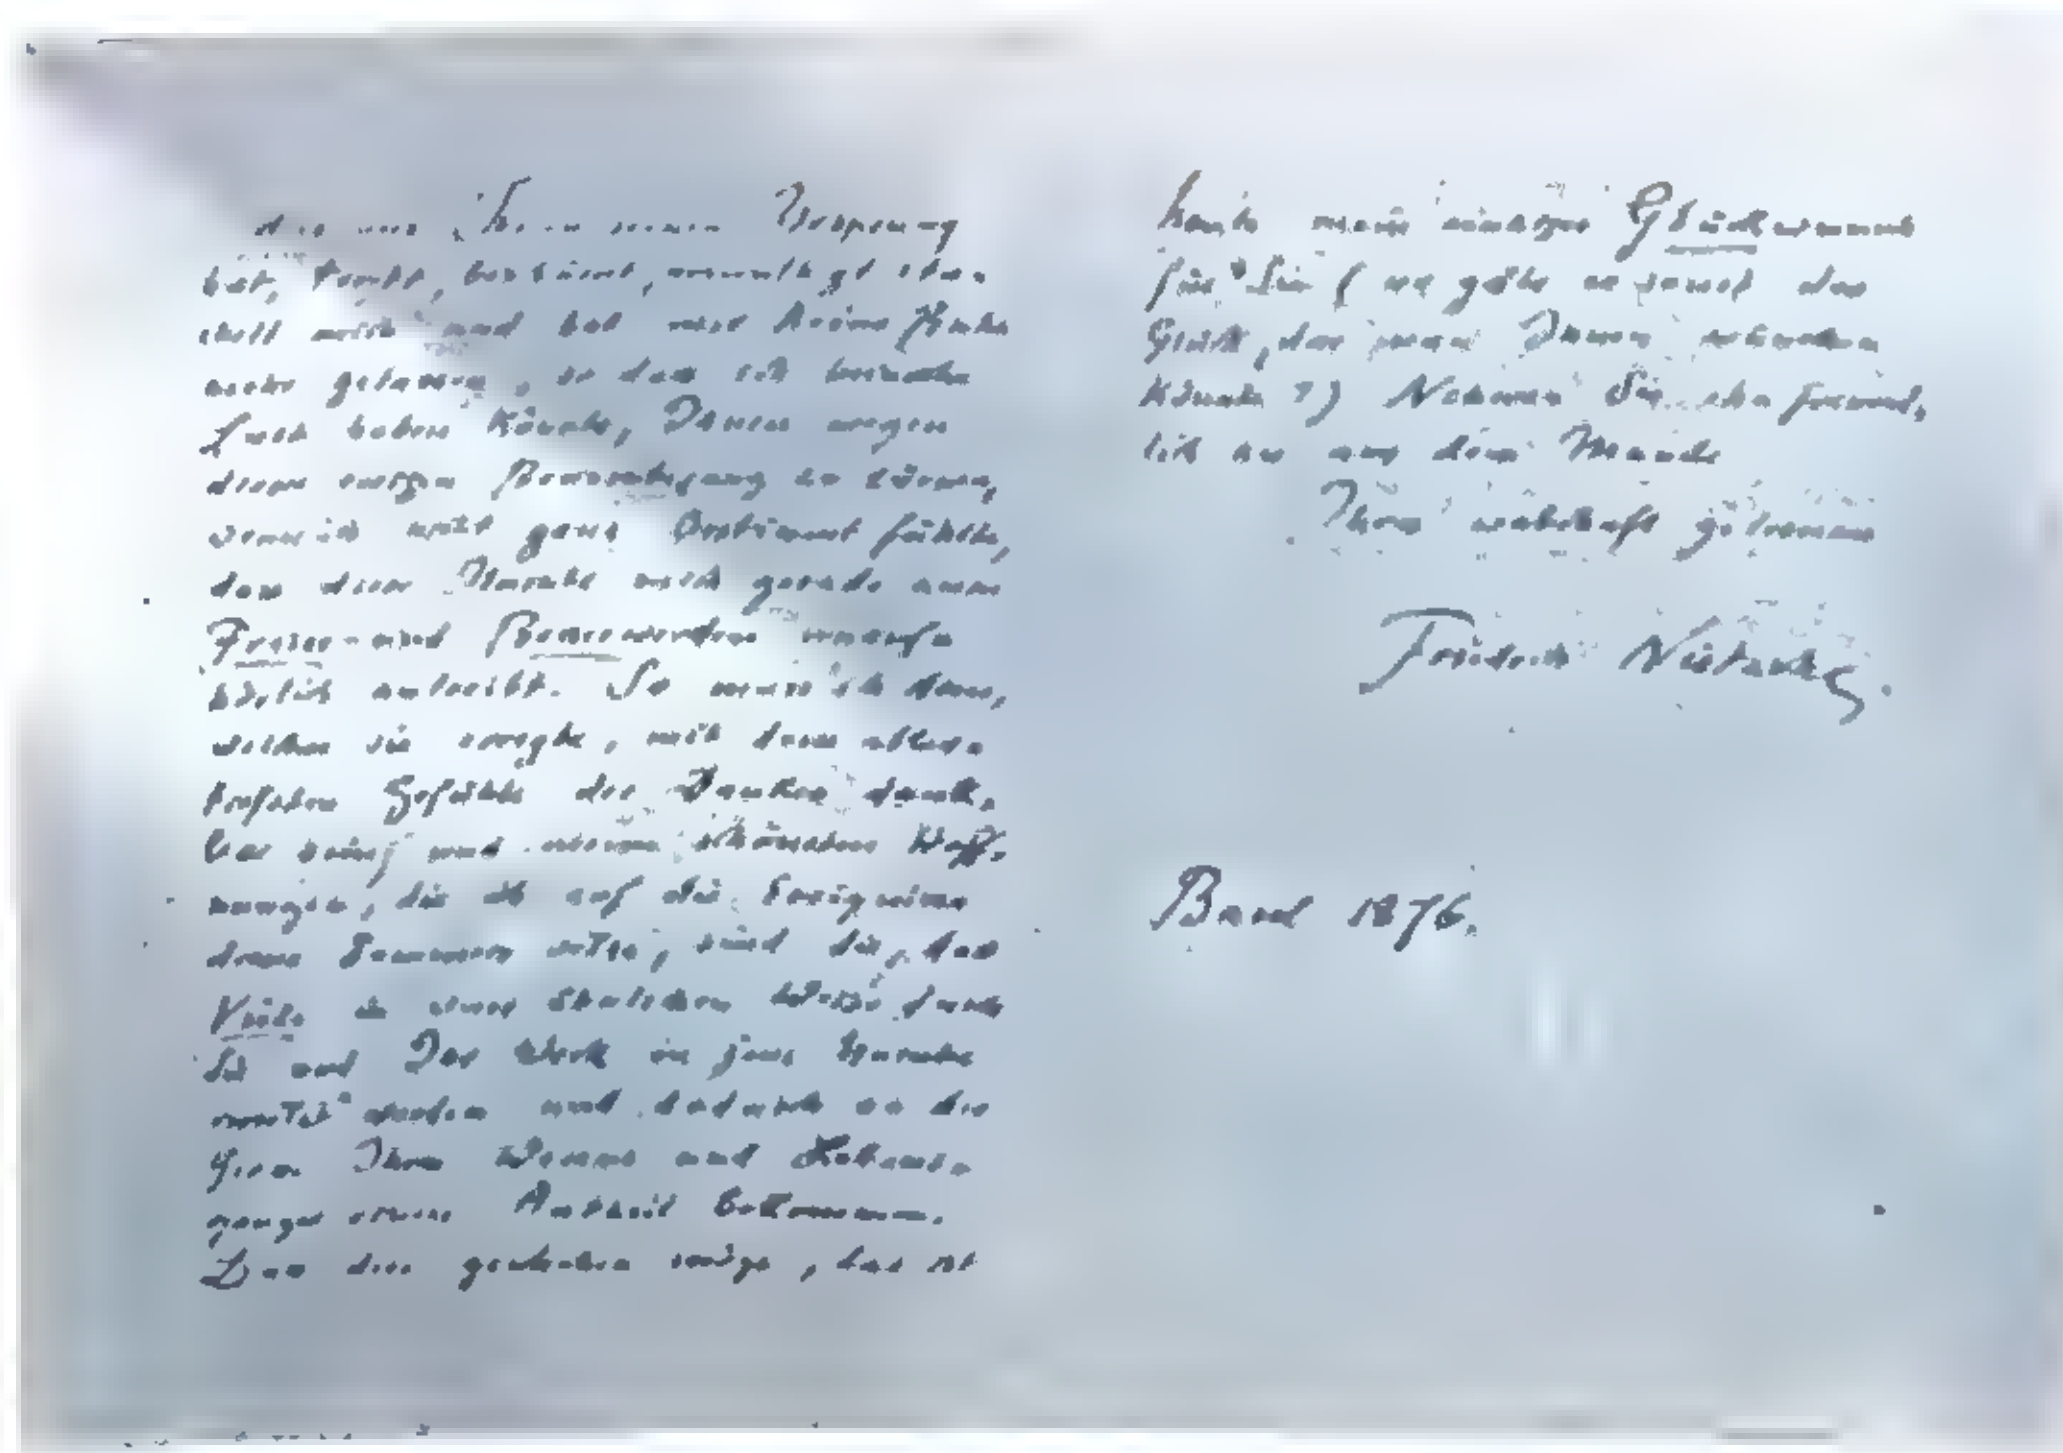 das aus Ihnen seinen Ursprung
hat, bestürmt,
mich und hat mir keine Ruhe
mehr gelassen, so dass ich beinahe
Lust haben könnte, Ihnen wegen
dieser ewigen Beunruhigung zu zürnen,
wenn ich nicht ganz bestimmt fühlte,
dass diese Unruhe mich gerade zum
Freier- und Besserwerden unauf=
hörlich antreibt. So muss ich dem,
welcher sie erregte, mit dem aller=
tiefsten Gefühle des Dankes dank-
bar sein; und meine schönsten Hoff-
nungen, die ich auf die Ereignisse
dieses Sommers setze, sind die, dass
Viele in einer ähnlichen Weise durch
Sie und Ihr Werk in jene Unruhe
versetzt werden und dadurch an der
Grösse Ihres Wesens und Lebens=
ganges einen Antheil bekommen.
Dass dies geschehen möge, das ist
heute mein einziger Glückwunsch
für Sie (wo gäbe es sonst das
Glück, das man Ihnen wünschen
könnte?) Nehmen Sie ihn freund-
lich an aus dem Munde
Ihres wahrhaft getreuen
Friedrich Nietzsche.
Basel 1876.